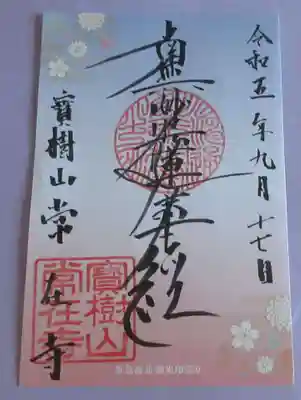 令和五年九月十七日
南無妙法蓮華経
寶樹山常在寺
寶樹山
常在寺